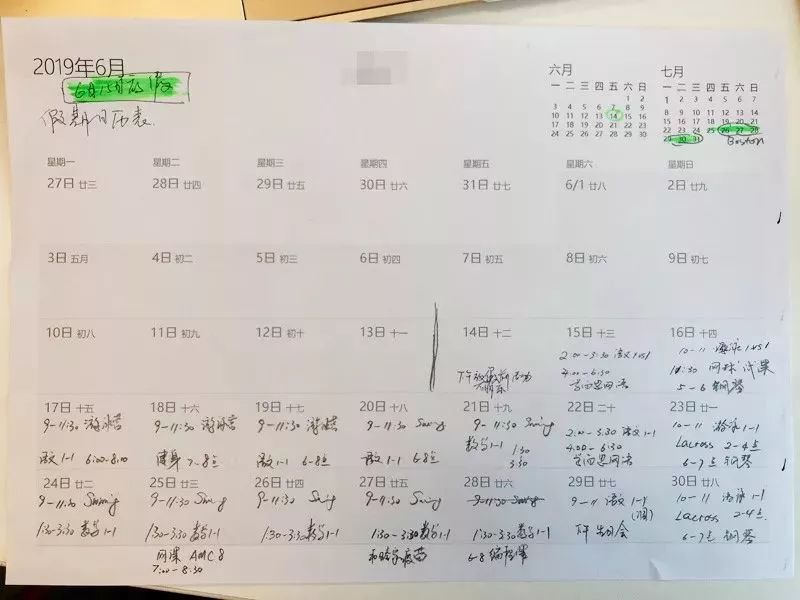 2019年6月
假期日历表.
六月
一 二 三 四 五 六 日
1 2
3 4 5 6 7 8 9
10 11 12 13 14 15 16
17 18 19 20 21 22 23
24 25 26 27 28 29 30
七月
一 二 三 四 五 六 日
1 2 3 4 5 6 7
8 9 10 11 12 13 14
15 16 17 18 19 20 21
22 23 24 25 26 27 28
29 30 31
Boston
星期一 星期二 星期三 星期四 星期五 星期六 星期日
27日 廿三 28日 廿四 29日 廿五 30日 廿六 31日 廿七 6/1 廿八 2日 廿九
3日 五月 4日 初二 5日 初三 6日 初四 7日 初五 8日 初六 9日 初七
10日 初八 11日 初九 12日 初十 13日 十一 14日 十二 15日 十三 16日 十四
2:00-3:30 语文 1vs1 10-11 游泳 1vs1
4:00-6:30 网球 试课
5-6 钢琴
17日 十五 18日 十六 19日 十七 20日 十八 21日 十九 22日 二十 23日 廿一
9-11:30 游泳营 9-11:30 游泳营 9-11:30 游泳营 9-11:30 9-11:30 2:00-3:30 语文 1-1 10-11 游泳 1-1
语文 1-1 6:00-8:00 健身 7-8点 语文 1-1 6-8点 语文 1-1 6-8点 数学 1-1 1:30 3:30 4:00-6:30 Lacross 2-4点
6-7点 钢琴
24日 廿二 25日 廿三 26日 廿四 27日 廿五 28日 廿六 29日 廿七 30日 廿八
9-11:30 9-11:30 9-11:30 9-11:30 9-11:30 9-11 语文 1-1 10-11 游泳 1-1
1:30-3:30 数学 1-1 1:30-3:30 数学 1-1 1:30-3:30 数学 1-1 1:30-3:30 数学 1-1 1:30-3:30 数学 1-1 下午 生日会 Lacross 2-4点
网课 AMC 8 6-8 编程课 6-7点 钢琴
7:00-8:30